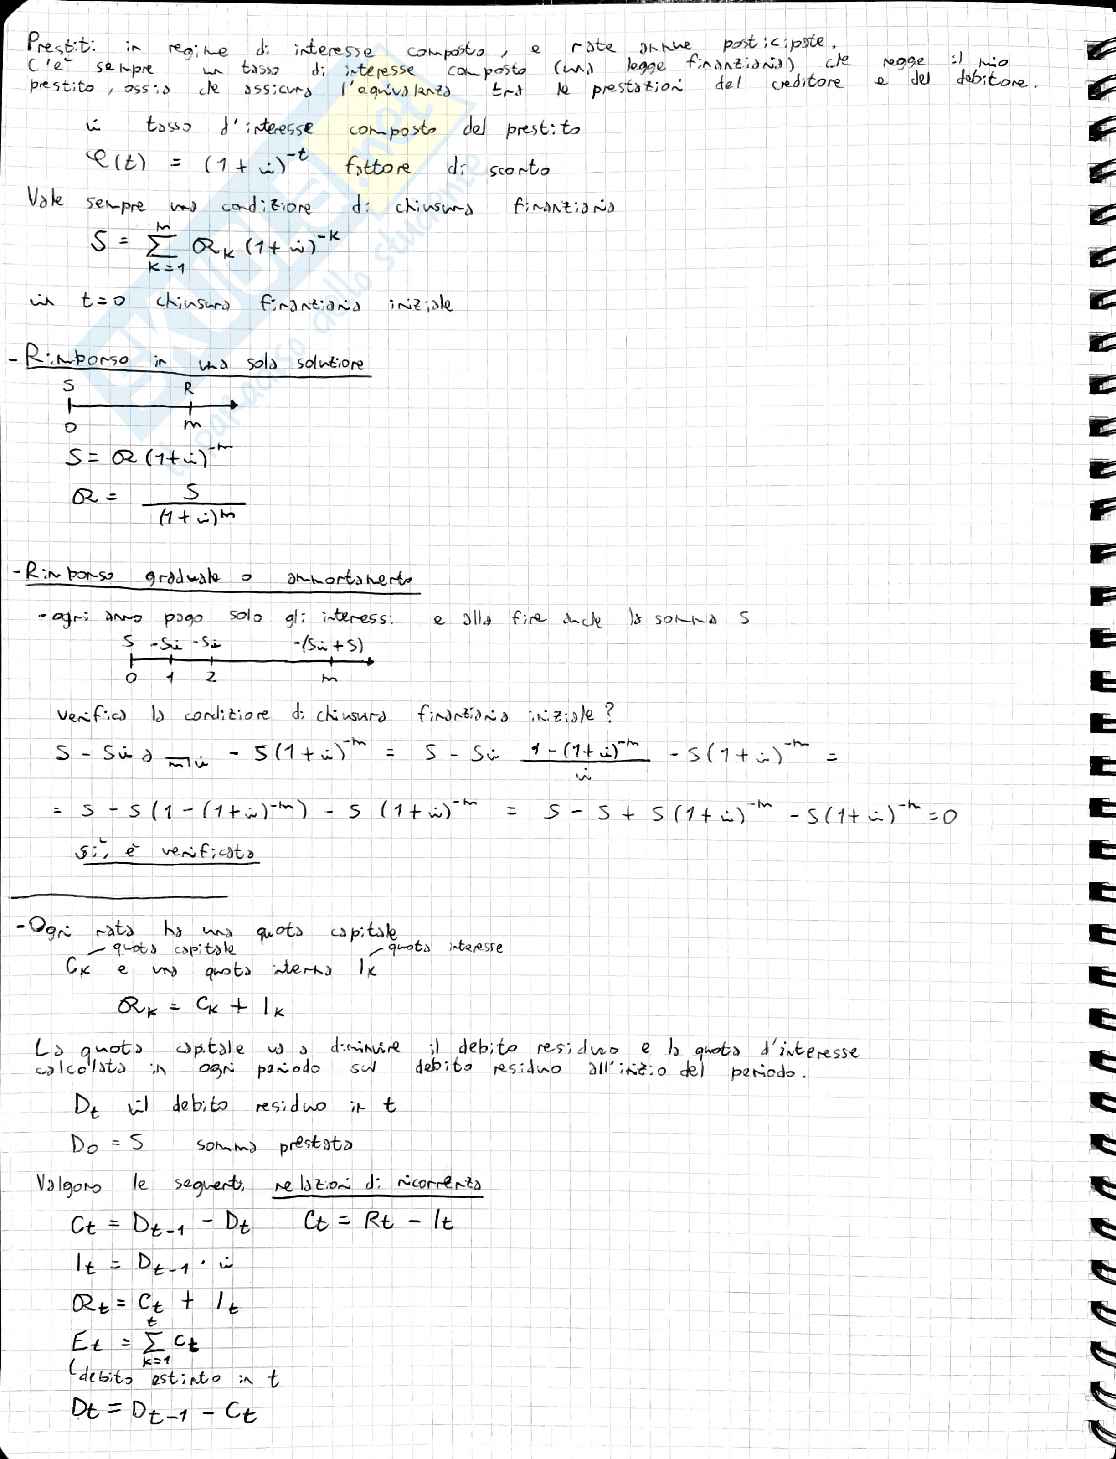 Prestiti in regime di interesse composto, e rate annue posticipate.
C'è sempre un tasso di interesse composto (una legge finanziaria) che regge il mio
prestito, ossia che assicura l'equivalenza tra le prestazioni del creditore e del debitore.
i tasso d'interesse composto del prestito
φ(t) = (1+i)^-t fattore di sconto
Vale sempre una condizione di chiusura finanziaria
S = Σ_{k=1}^{m} R_k (1+i)^-k
in t=0 chiusura finanziaria iniziale
- Rimborso in una sola soluzione
S R
0 m
S = R (1+i)^-m
R = S / (1+i)^m
- Rimborso graduale o ammortamento
- ogni anno pago solo gli interessi e alla fine anche la somma S
S -Si -Si -(Si+S)
0 1 2 m
verifica la condizione di chiusura finanziaria iniziale?
S - Si a_{m|i} - S(1+i)^-m = S - Si (1-(1+i)^-m)/i - S(1+i)^-m =
= S - S(1-(1+i)^-m) - S(1+i)^-m = S - S + S(1+i)^-m - S(1+i)^-m = 0
sì, è verificata
- Ogni rata ha una quota capitale
quota capitale quota interesse
C_k e una quota interna I_k
R_k = C_k + I_k
La quota capitale va a diminuire il debito residuo e la quota d'interesse
calcolata in ogni periodo sul debito residuo all'inizio del periodo.
D_t il debito residuo in t
D_0 = S somma prestata
Valgono le seguenti relazioni di ricorrenza
C_t = D_{t-1} - D_t C_t = R_t - I_t
I_t = D_{t-1} · i
R_t = C_t + I_t
E_t = Σ_{k=1}^{t} C_t
debito estinto in t
D_t = D_{t-1} - C_t